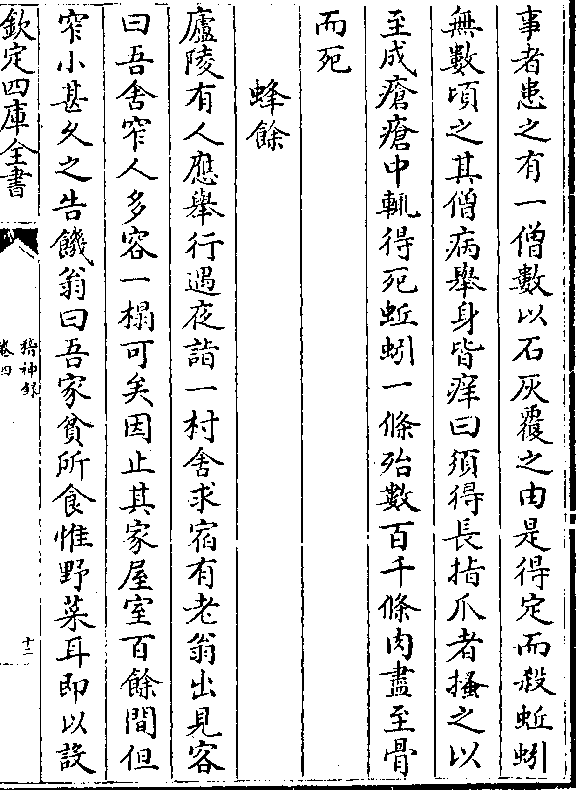 事者患之有一僧數以石灰覆之由是得定而殺蚯蚓
無數頃之其僧病舉身皆痒曰須得長指爪者搔之以
至成瘡瘡中輒得死蚯蚓一條殆數百千條肉盡至骨
而死
蜂餘
廬陵有人應舉行遇夜詣一村舍求宿有老翁出見客
曰吾舍窄人多容一榻可矣因止其家屋室百餘間但
窄小甚久之告饑翁曰吾家貧所食惟野菜耳即以設
欽定四庫全書
稽神錄
卷四
十二